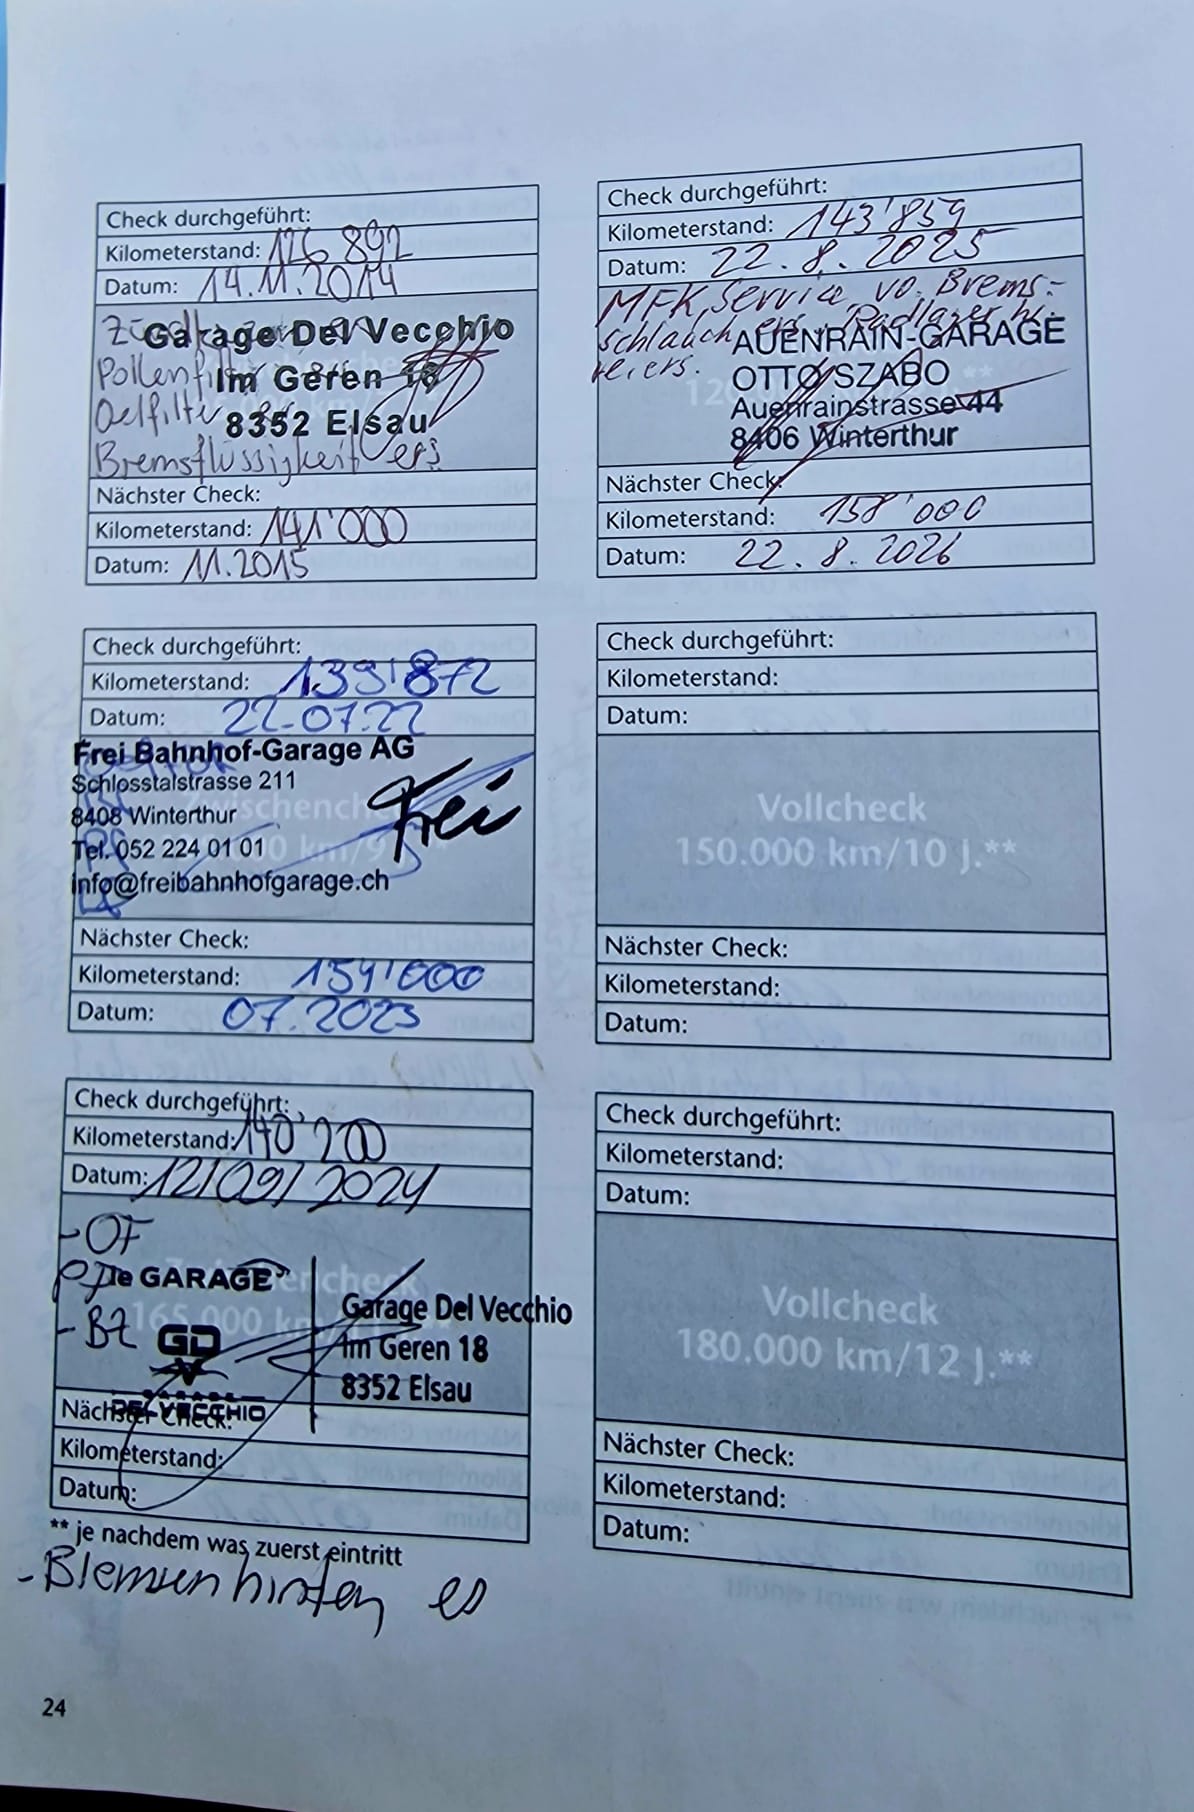 Check durchgeführt:
Kilometerstand: 126 892
Datum: 14.11.2014
Garage Del Vecchio
Pollenfilter
Im Geren 18
Oelfilter
8352 Elsau
Bremsflüssigkeit ers
Nächster Check:
Kilometerstand: 141'000
Datum: 11.2015
Check durchgeführt:
Kilometerstand: 139'872
Datum: 22.07.22
Frei Bahnhof-Garage AG
Schlosstalstrasse 211
8408 Winterthur
Tel. 052 224 01 01
info@freibahnhofgarage.ch
Frei
Nächster Check:
Kilometerstand: 154'000
Datum: 07.2023
Check durchgeführt:
Kilometerstand: 140'200
Datum: 12/09/2024
- OF
le GARAGE
165.000 km
- BZ
GD
V
DEL VECCHIO
Garage Del Vecchio
Im Geren 18
8352 Elsau
Nächster Check:
Kilometerstand:
Datum:
** je nachdem was zuerst eintritt
- Bremsen hinten es
24
Check durchgeführt:
Kilometerstand: 143'859
Datum: 22.8.2025
MFK, Service, vo. Brems-
schlauch ers. Radlager hi.
re. ers.
AUENRAIN-GARAGE
OTTO SZABO
Auenrainstrasse 44
8406 Winterthur
Nächster Check:
Kilometerstand: 158'000
Datum: 22.8.2026
Check durchgeführt:
Kilometerstand:
Datum:
Vollcheck
150.000 km/10 J.**
Nächster Check:
Kilometerstand:
Datum:
Check durchgeführt:
Kilometerstand:
Datum:
Vollcheck
180.000 km/12 J.**
Nächster Check:
Kilometerstand:
Datum: